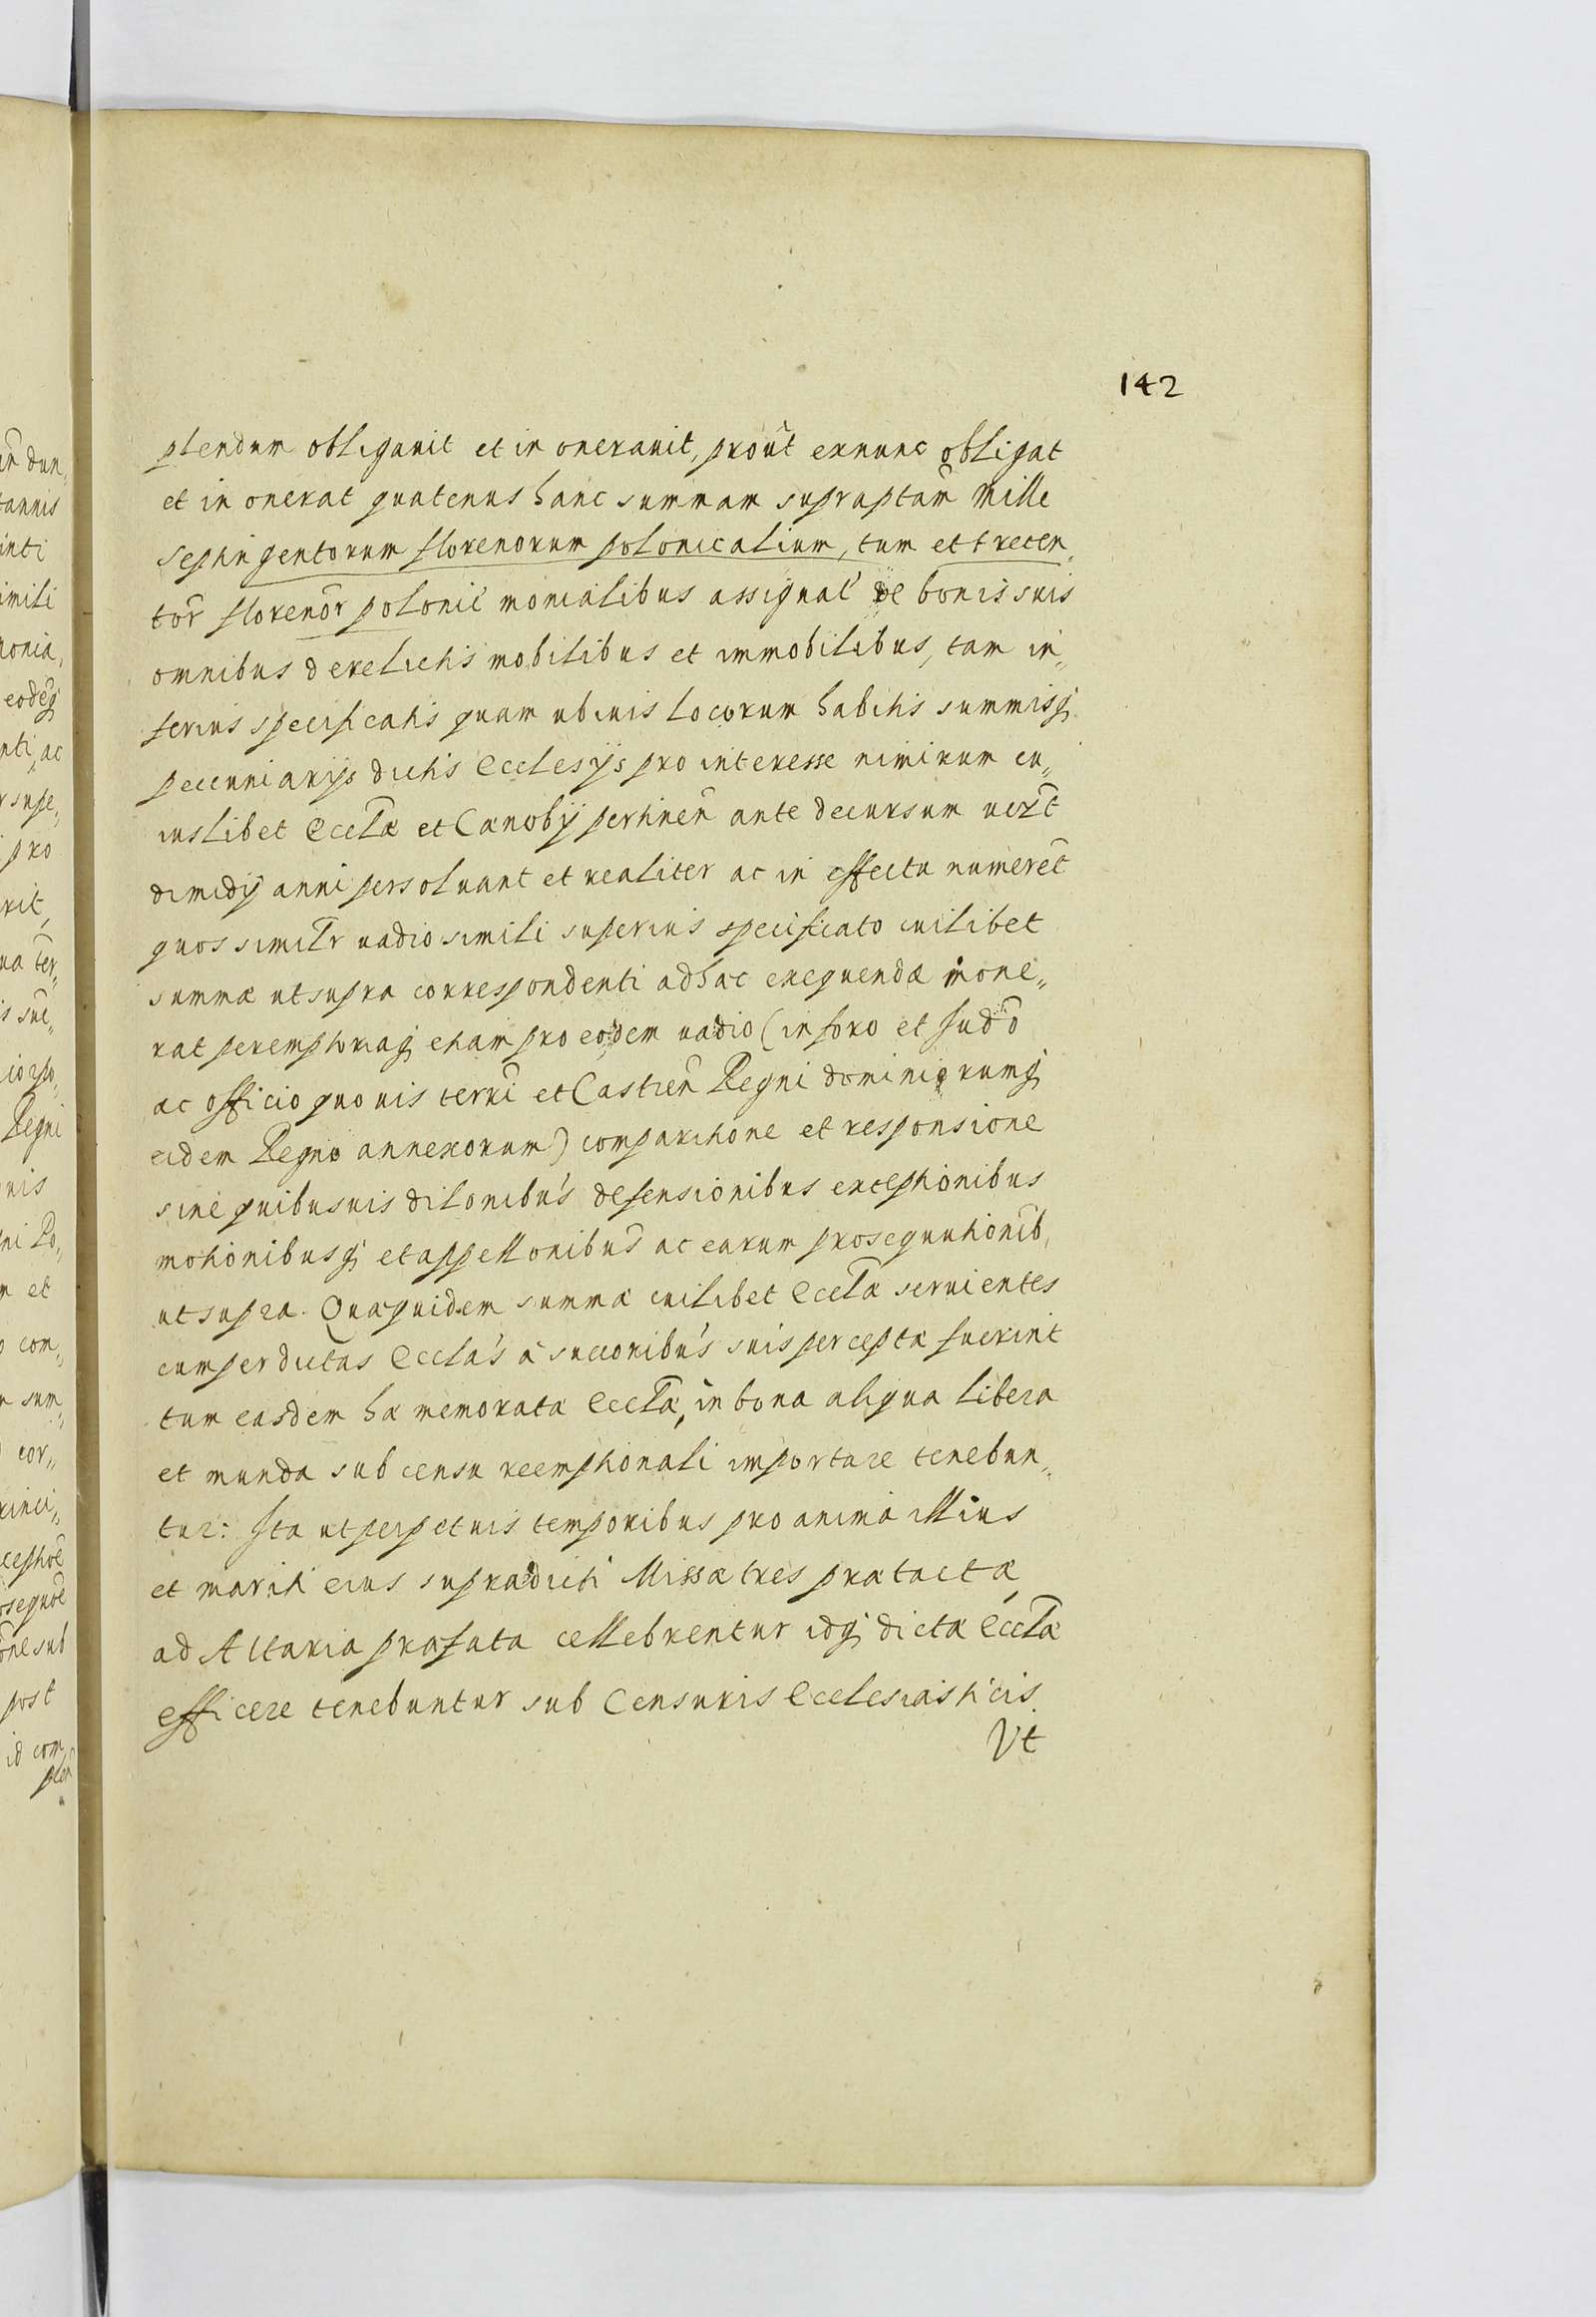 142
plendum obligauit et in onerauit, prout exnunc obligat
et in onerat quatenus hanc summam supraptam Mille
septingentorum florenorum polonicalium, tum et trecen„
tor florenor polonic monialibus assignat de bonis suis
omnibus derelictis mobilibus et immobilibus, tam in„
ferius specificatis quam ubiuis locorum habitis summisq
pecuniarijs dictis Ecclesijs pro interesse nimirum cu„
iuslibet Eccla et Cænobij pertinen ante decursum
dimidij anni persoluant et realiter ac in effectu numeret
quos similr uadio simili superius specificato cuilibet
summæ ut supra correspondenti ad hæc exequenda inone„
rat peremptoriaq etiam pro eodem uadio (in foro et Iud o
ac officio quouis terri et Castren Regni dominiorumq
eidem Regno annexorum) comparitione et responsione
sine quibusuis dilonibus defensionibus exceptionibus
motionibusq et appellonibus ac earum prosequutionib,
ut supra. Quæquidem summæ cuilibet Eccla seruientes
cum per dictas Ecclas à succonibus suis perceptæ fuerint
tum easdem hæ memoratæ Eccla, in bona aliqua libera
et munda sub censu reemptionali importare tenebun„
tur: Ita ut perpetuis temporibus pro anima illius
et mariti eius supradicti Missæ tres prætactæ
ad Altaria præfata cellebrentur idq dictæ Eccla
efficere tenebuntur sub Censuris Ecclesiasticis.
Vt